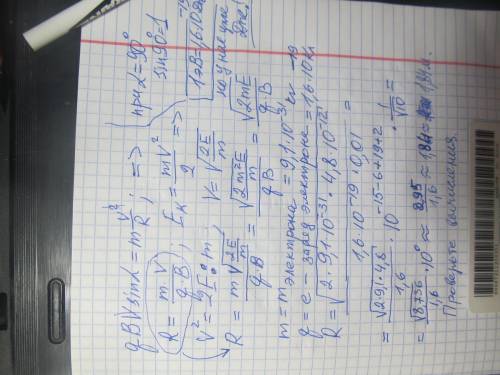 qBVsinα = m V²/R ; => при α=90° sin90°=1
R = mV/(q·B) ; Eк = mV²/2 => 1эВ=1,6·10⁻¹⁹
V² = 2E : m ; V = √(2E/m)
R = m√(2E/m)/(q·B) = √(2m²E/m)/(qB) = √(2mE)/(q·B)
m = m электрона = 9,1·10⁻³¹ кг
q = e - заряд электрона = 1,6·10⁻¹⁹ Кл
R = √(2·9,1·10⁻³¹·4,8·10⁻¹²)/(1,6·10⁻¹⁹·0,01) =
= √(2·9,1·4,8)/1,6 · 10^(-15-6+19+2) · 1/√10 =
= √8,736/1,6 · 10⁰ ≈ 2,95/1,6 ≈ 1,84 м.
Проверьте вычисления